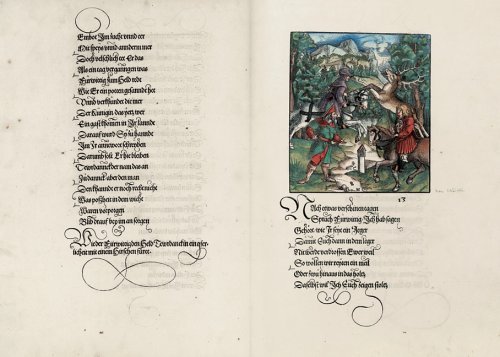 Embot Im vnnd eer
Mit speys vnnd annderm mer
Doch velschlich tet Er das
Als ein tag verganngen was
Fürwittig zum Held redt
Wie Er ein poten gesanndt het
Vnnd verkhundet die mer
Der Kunigin das yetz wer
Ein gast khomen in Ir lanndt
Darauf ward So zu hanndt
Im Ir schreyben
Darumb solt Er hie bleiben
Tewrdannck nam das an
Zu danck aber den man
Den khanndt er noch recht nicht
Was posheit in dem wicht
Waren verporgen
Bleib drauf bey im an sorgen
Wie der Fürwittig den Held Tewrdannck in ein gfer-
licheit mit einem Hirschen füret.
13
Nach etwas verschinen tagen
Sprach Fürwittig Ich hab sagen
Gehört wie Ir seyt ein Jeger
Damit Euch dann in dem leger
Nit werde verdrossen Ewer weil
So wollen wir reyten ein meil
Oder zwu hinaus in das holtz
Daselbst wil Ich Euch zeigen stoltz